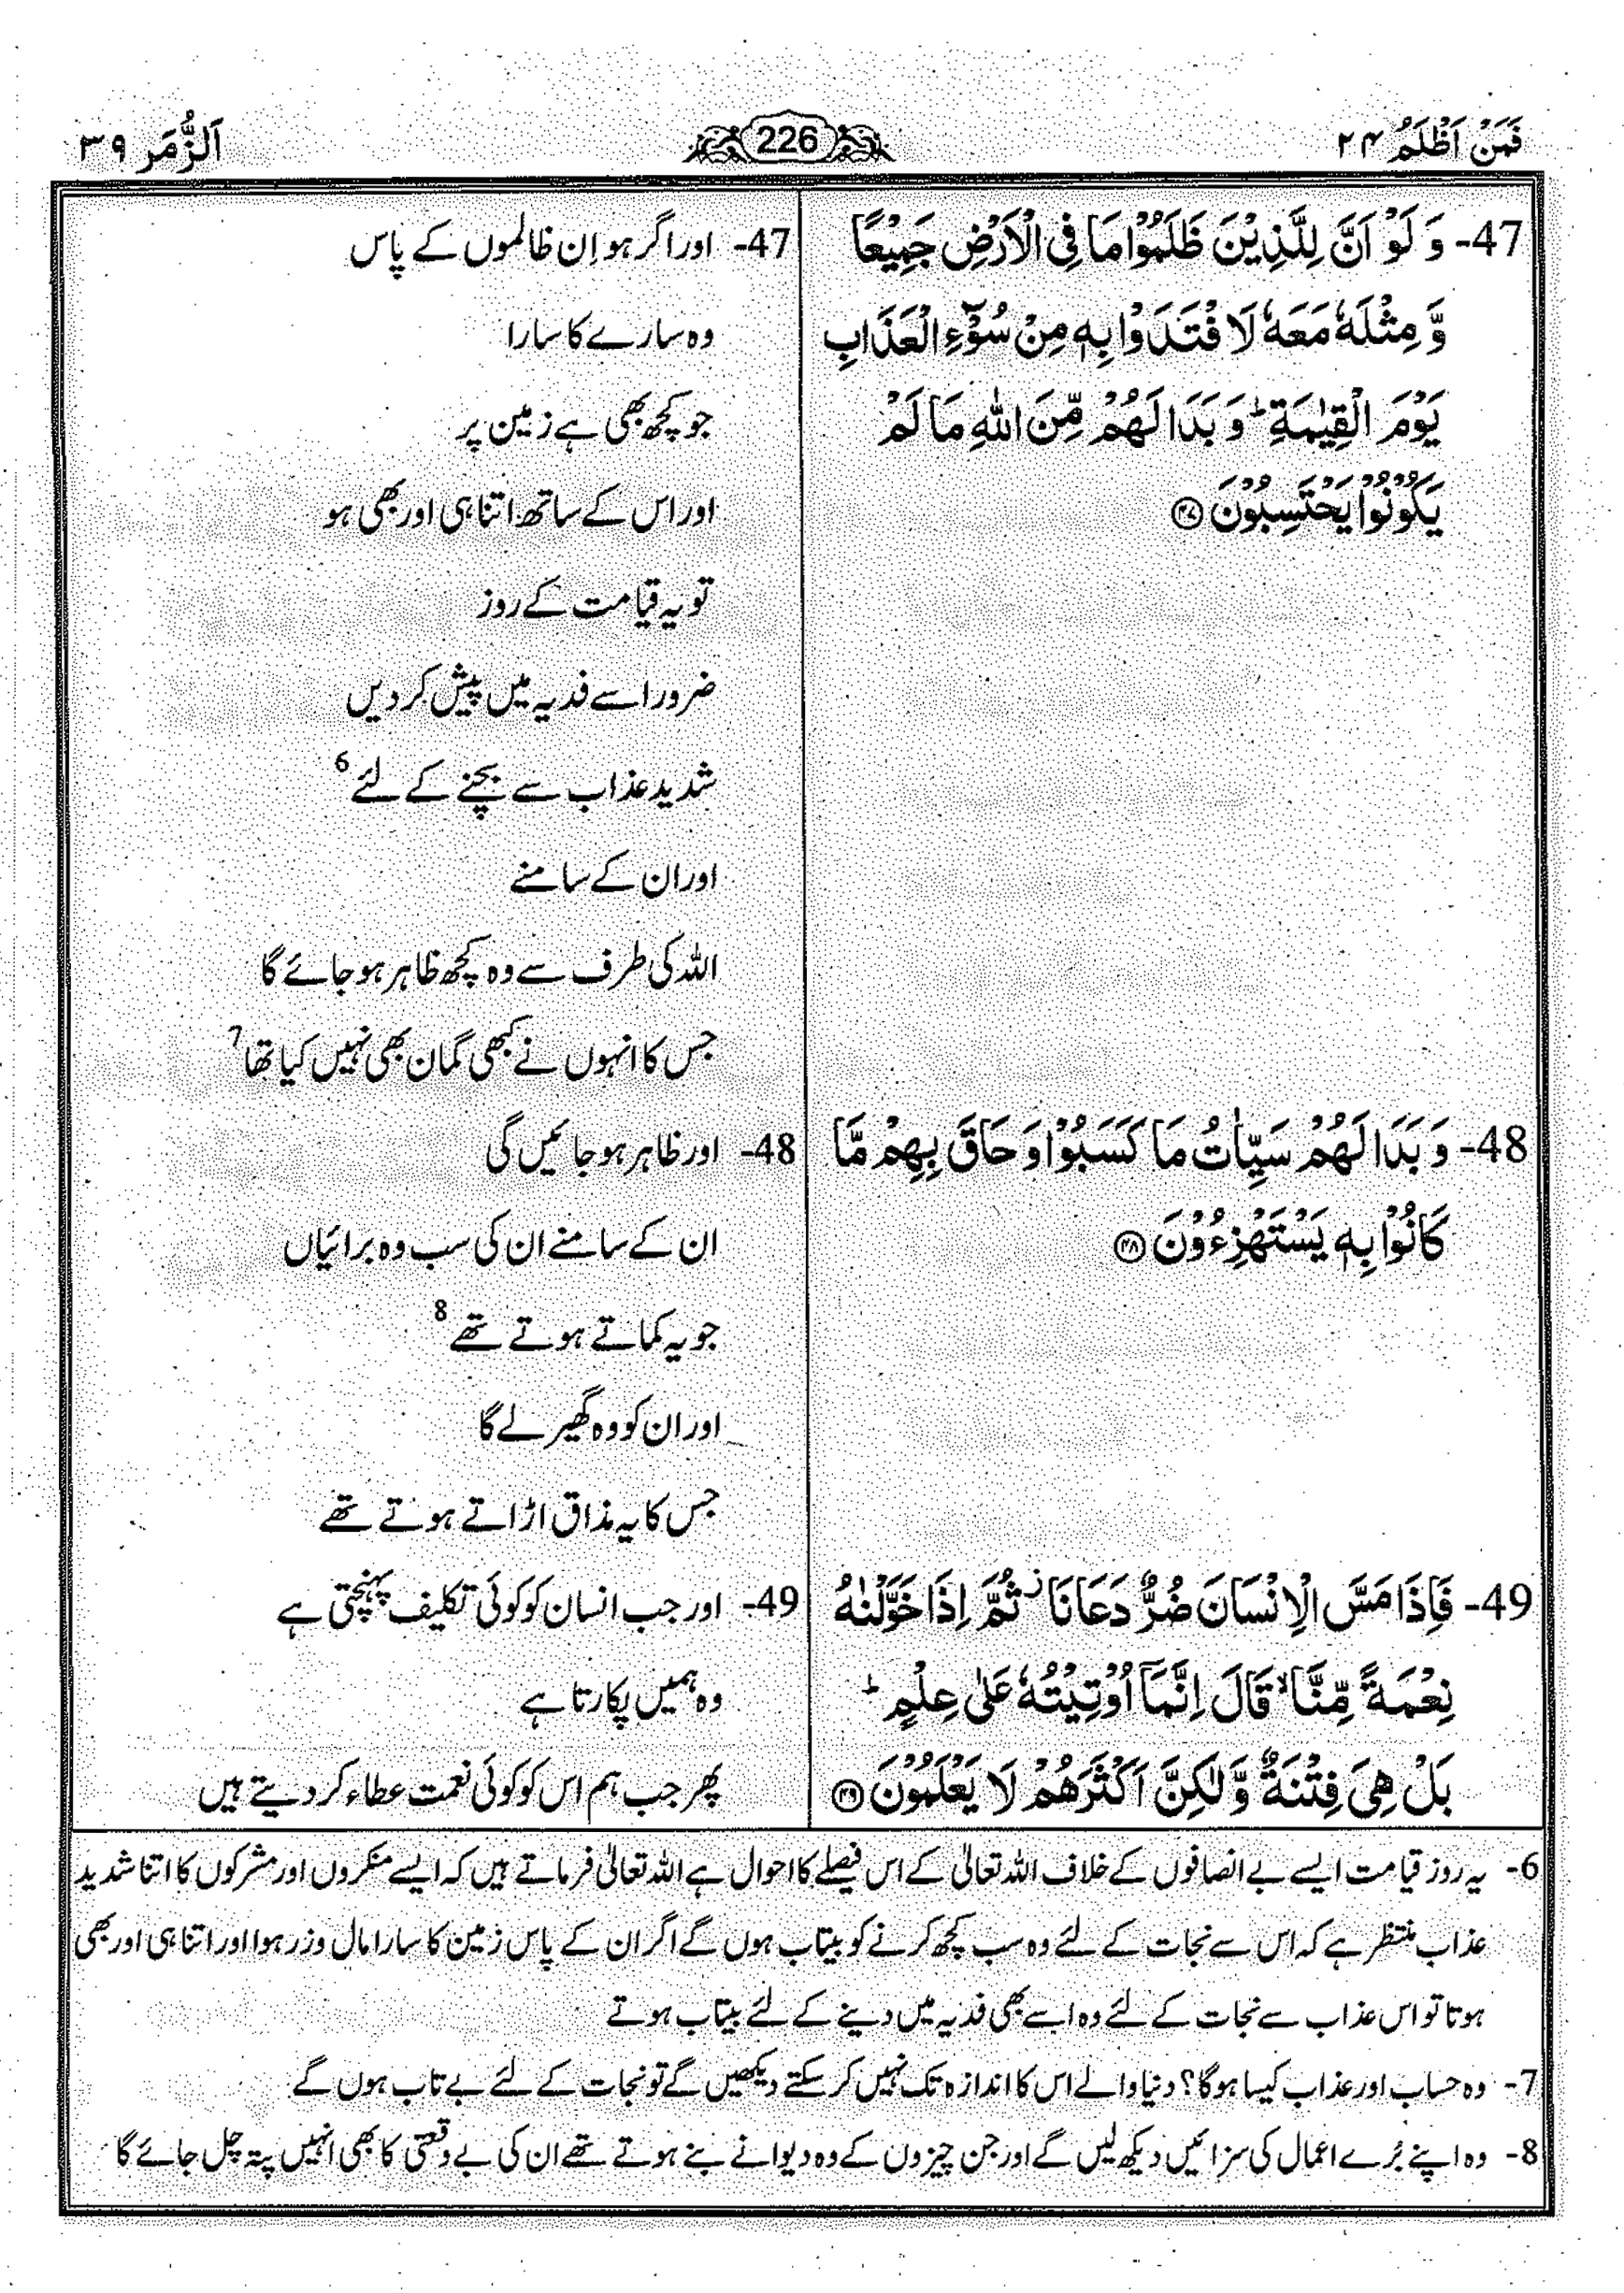 فَمَنْ اَظْلَمُ ۲۴
226
اَلزُّمَر ۳۹
47- وَ لَوْ اَنَّ لِلَّذِيْنَ ظَلَمُوْا مَا فِي الْاَرْضِ جَمِيْعًا
وَّ مِثْلَهٗ مَعَهٗ لَا فْتَدَوْا بِهٖ مِنْ سُوْٓءِ الْعَذَابِ
يَوْمَ الْقِيٰمَةِ ؕ وَ بَدَا لَهُمْ مِّنَ اللّٰهِ مَا لَمْ
يَكُوْنُوْا يَحْتَسِبُوْنَ ﴿۴۷﴾
47- اور اگر ہو اِن ظالموں کے پاس
وہ سارے کا سارا
جو کچھ بھی ہے زمین پر
اور اس کے ساتھ اتنا ہی اور بھی ہو
تو یہ قیامت کے روز
ضرور اسے فدیہ میں پیش کر دیں
شدید عذاب سے بچنے کے لئے 6
اور ان کے سامنے
اللہ کی طرف سے وہ کچھ ظاہر ہو جائے گا
جس کا انہوں نے کبھی گمان بھی نہیں کیا تھا 7
48- وَ بَدَا لَهُمْ سَيِّاٰتُ مَا كَسَبُوْا وَ حَاقَ بِهِمْ مَّا
كَانُوْا بِهٖ يَسْتَهْزِءُوْنَ ﴿۴۸﴾
48- اور ظاہر ہو جائیں گی
ان کے سامنے ان کی سب وہ برائیاں
جو یہ کماتے ہوتے تھے 8
اور ان کو وہ گھیر لے گا
جس کا یہ مذاق اڑاتے ہوتے تھے
49- فَاِذَا مَسَّ الْاِنْسَانَ ضُرٌّ دَعَانَا ؗ ثُمَّ اِذَا خَوَّلْنٰهُ
نِعْمَةً مِّنَّا ۙ قَالَ اِنَّمَآ اُوْتِيْتُهٗ عَلٰى عِلْمٍ ؕ
بَلْ هِيَ فِتْنَةٌ وَّلٰكِنَّ اَكْثَرَهُمْ لَا يَعْلَمُوْنَ ﴿۴۹﴾
49- اور جب انسان کو کوئی تکلیف پہنچتی ہے
وہ ہمیں پکارتا ہے
پھر جب ہم اس کو کوئی نعمت عطاء کر دیتے ہیں
6- یہ روز قیامت ایسے بے انصافوں کے خلاف اللہ تعالیٰ کے اس فیصلے کا احوال ہے اللہ تعالیٰ فرماتے ہیں کہ ایسے منکروں اور مشرکوں کا اتنا شدید
عذاب منتظر ہے کہ اس سے نجات کے لئے وہ سب کچھ کرنے کو بیتاب ہوں گے اگر ان کے پاس زمین کا سارا مال وزر ہوا اور اتنا ہی اور بھی
ہوتا تو اس عذاب سے نجات کے لئے وہ اسے بھی فدیہ میں دینے کے لئے بیتاب ہوتے
7- وہ حساب اور عذاب کیسا ہوگا؟ دنیا والے اس کا اندازہ تک نہیں کر سکتے دیکھیں گے تو نجات کے لئے بے تاب ہوں گے
8- وہ اپنے بُرے اعمال کی سزائیں دیکھ لیں گے اور جن چیزوں کے وہ دیوانے بنے ہوتے تھے ان کی بے وقعتی کا بھی انہیں پتہ چل جائے گا